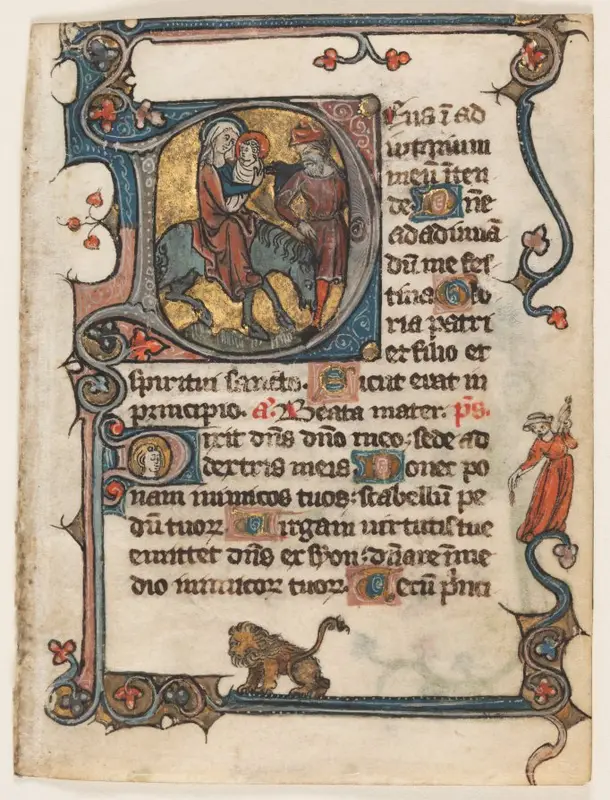 Deus ī ad
iutorium
meū īten
de Dn̄e
ad adiuuā
dū me fes
tina Glo
ria patri
et filio et
spiritui sancto. Sicut erat in
principio. a. Beata mater. p̄s.
Dixit dn̄s dn̄o meo: sede ad
dextris meis Donec po
nam inimicos tuos: scabellū pe
dū tuoꝝ Virgam uirtutis tue
emittet dn̄s ex syon: dn̄are ī me
dio inimicoꝝ tuoꝝ. Tecū p̄nci